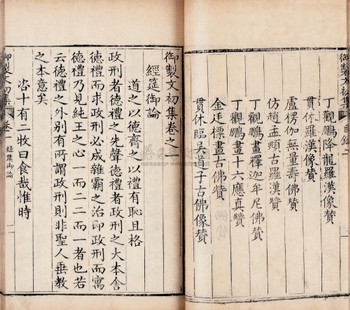 御製文初集
目錄
丁觀鵬降龍羅漢贊
貫休羅漢像贊
盧楞伽無量壽佛贊
趙孟頫古羅漢贊
丁觀鵬畫釋迦牟尼佛贊
丁觀鵬畫十六應真贊
金廷標畫古佛贊
貫休臨吳道子古佛像贊
御製文初集卷之一
經筵御論
道之以德齊之以禮有恥且格
政刑者德禮之先聲德禮者政刑之大本舍
德禮而求政刑必成雜霸之治即政刑而寓
德禮乃見純王之心一而二二而一者也若
云德禮之外別有所謂政刑則非聖人垂教
之本意矣
咨十有二牧曰食哉惟時
御製文初集
卷一
經筵御論